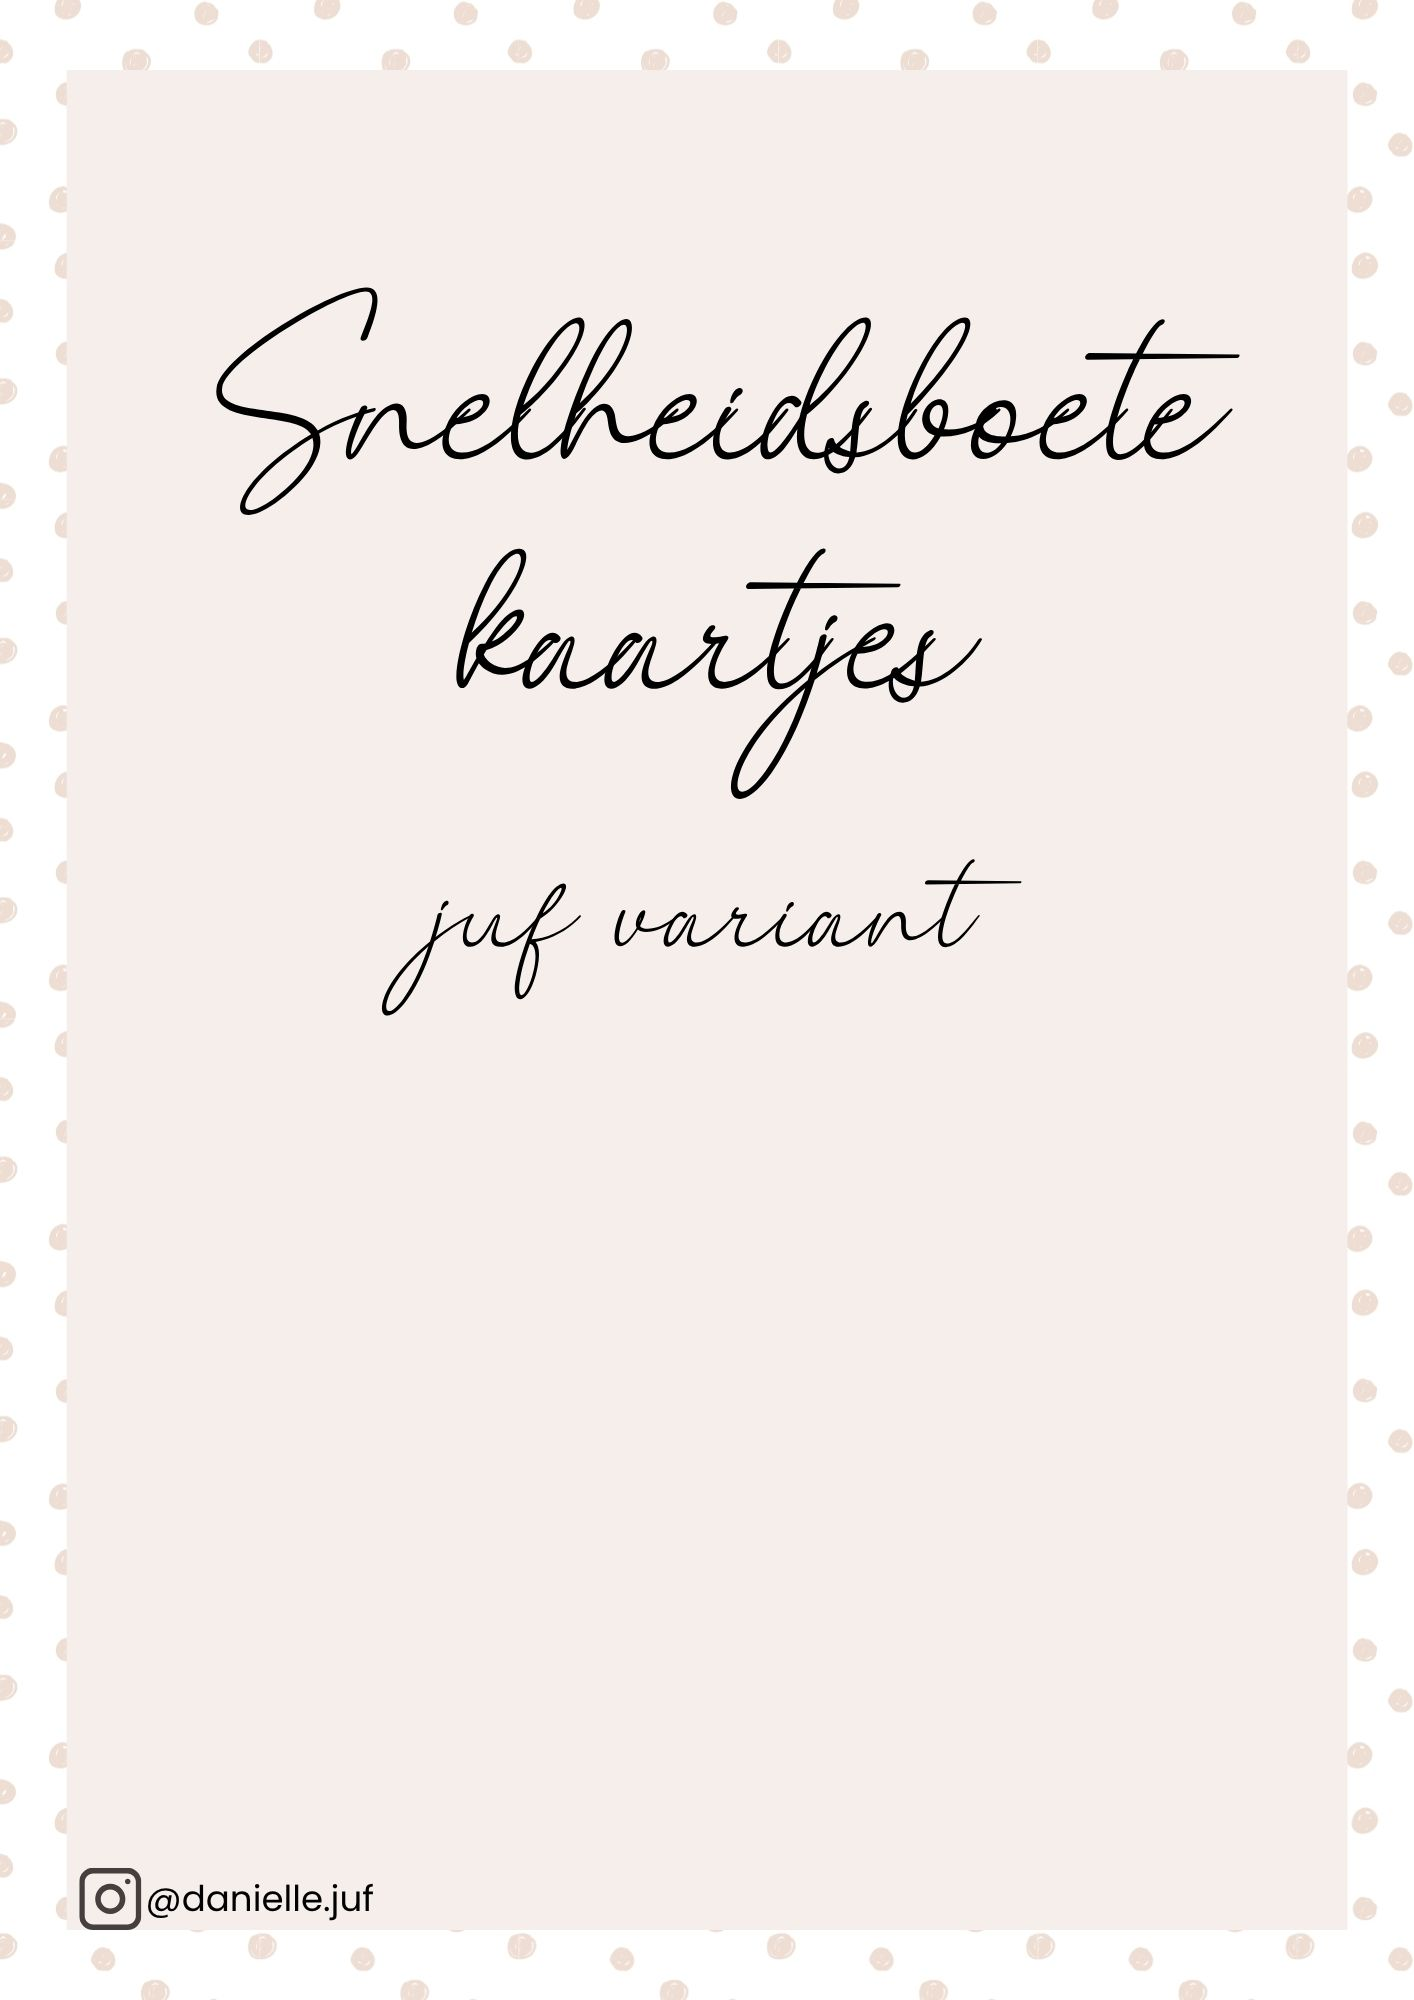 Snelheidsboete
kaartjes
juf variant
@danielle.juf